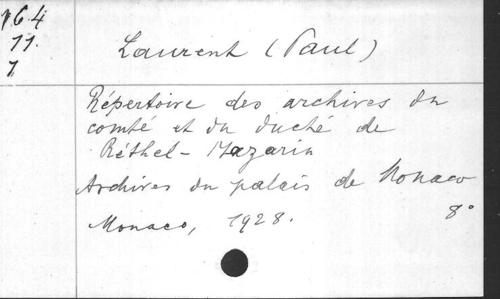 164
11.
7
Laurent (Paul)
Répertoire des archives du
comté et du duché de
Réthel-Mazarin
Archives du palais de Monaco
Monaco, 1928. 8°